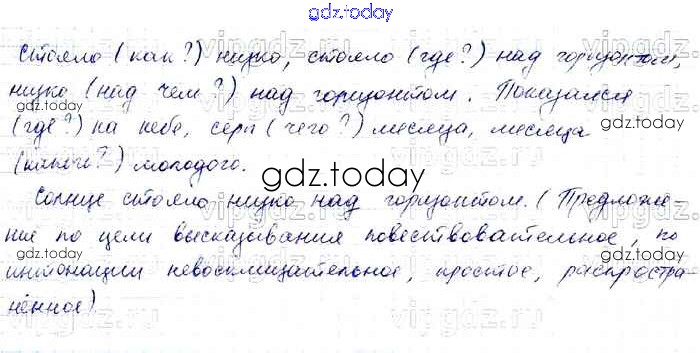 gdz.today
Стояло (как?) низко, стояло (где?) над горизонтом,
низко (над чем?) над горизонтом. Показался
(где?) на небе, серп (чего?) месяца, месяца
(какого?) молодого.
gdz.today
Солнце стояло низко над горизонтом. (Предложе-
ние по цели высказывания повествовательное, по
интонации невосклицательное, простое, распростра-
нённое)